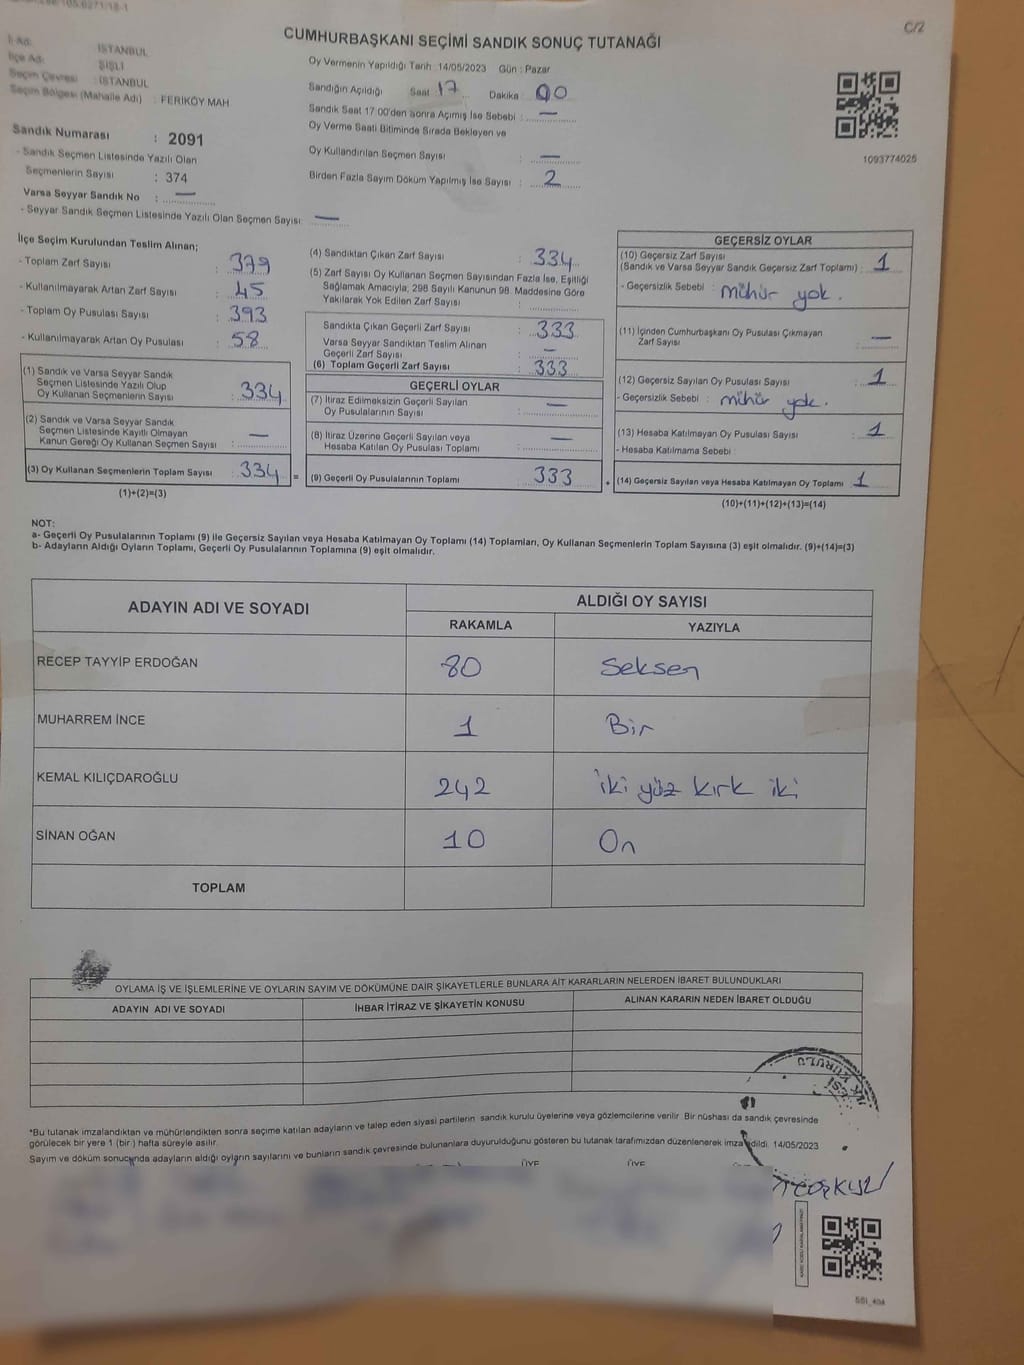 C/2
CUMHURBAŞKANI SEÇİMİ SANDIK SONUÇ TUTANAĞI
İl Adı: İSTANBUL
İlçe Adı: ŞİŞLİ
Seçim Çevresi : İSTANBUL
Seçim Bölgesi (Mahalle Adı) : FERİKÖY MAH
Sandık Numarası : 2091
- Sandık Seçmen Listesinde Yazılı Olan
Seçmenlerin Sayısı : 374
Varsa Seyyar Sandık No : —
- Seyyar Sandık Seçmen Listesinde Yazılı Olan Seçmen Sayısı: —
Oy Vermenin Yapıldığı Tarih :14/05/2023 Gün : Pazar
Sandığın Açıldığı Saat 17 Dakika 00
Sandık Saat 17:00'den sonra Açımış İse Sebebi : —
Oy Verme Saati Bitiminde Sırada Bekleyen ve
Oy Kullandırılan Seçmen Sayısı : —
Birden Fazla Sayım Döküm Yapılmış İse Sayısı : 2
1093774025
İlçe Seçim Kurulundan Teslim Alınan;
- Toplam Zarf Sayısı : 379
- Kullanılmayarak Artan Zarf Sayısı : 45
- Toplam Oy Pusulası Sayısı : 393
- Kullanılmayarak Artan Oy Pusulası : 58
(1) Sandık ve Varsa Seyyar Sandık
Seçmen Listesinde Yazılı Olup
Oy Kullanan Seçmenlerin Sayısı : 334
(2) Sandık ve Varsa Seyyar Sandık
Seçmen Listesinde Kayıtlı Olmayan
Kanun Gereği Oy Kullanan Seçmen Sayısı : —
(3) Oy Kullanan Seçmenlerin Toplam Sayısı : 334 =
(1)+(2)=(3)
(4) Sandıktan Çıkan Zarf Sayısı : 334
(5) Zarf Sayısı Oy Kullanan Seçmen Sayısından Fazla İse, Eşitliği
Sağlamak Amacıyla, 298 Sayılı Kanunun 98. Maddesine Göre
Yakılarak Yok Edilen Zarf Sayısı :
Sandıkta Çıkan Geçerli Zarf Sayısı : 333
Varsa Seyyar Sandıktan Teslim Alınan
Geçerli Zarf Sayısı : —
(6) Toplam Geçerli Zarf Sayısı : 333
GEÇERLİ OYLAR
(7) İtiraz Edilmeksizin Geçerli Sayılan
Oy Pusulalarının Sayısı : —
(8) İtiraz Üzerine Geçerli Sayılan veya
Hesaba Katılan Oy Pusulası Toplamı : —
(9) Geçerli Oy Pusulalarının Toplamı : 333 +
GEÇERSİZ OYLAR
(10) Geçersiz Zarf Sayısı
(Sandık ve Varsa Seyyar Sandık Geçersiz Zarf Toplamı) : 1
- Geçersizlik Sebebi : mühür yok.
(11) İçinden Cumhurbaşkanı Oy Pusulası Çıkmayan
Zarf Sayısı : —
(12) Geçersiz Sayılan Oy Pusulası Sayısı : 1
- Geçersizlik Sebebi : mühür yok.
(13) Hesaba Katılmayan Oy Pusulası Sayısı : 1
- Hesaba Katılmama Sebebi :
(14) Geçersiz Sayılan veya Hesaba Katılmayan Oy Toplamı 1
(10)+(11)+(12)+(13)=(14)
NOT:
a- Geçerli Oy Pusulalarının Toplamı (9) ile Geçersiz Sayılan veya Hesaba Katılmayan Oy Toplamı (14) Toplamları, Oy Kullanan Seçmenlerin Toplam Sayısına (3) eşit olmalıdır. (9)+(14)=(3)
b- Adayların Aldığı Oyların Toplamı, Geçerli Oy Pusulalarının Toplamına (9) eşit olmalıdır.
ADAYIN ADI VE SOYADI ALDIĞI OY SAYISI
RAKAMLA YAZIYLA
RECEP TAYYİP ERDOĞAN 80 Seksen
MUHARREM İNCE 1 Bir
KEMAL KILIÇDAROĞLU 242 iki yüz kırk iki
SİNAN OĞAN 10 On
TOPLAM
OYLAMA İŞ VE İŞLEMLERİNE VE OYLARIN SAYIM VE DÖKÜMÜNE DAİR ŞİKAYETLERLE BUNLARA AİT KARARLARIN NELERDEN İBARET BULUNDUKLARI
ADAYIN ADI VE SOYADI İHBAR İTİRAZ VE ŞİKAYETİN KONUSU ALINAN KARARIN NEDEN İBARET OLDUĞU
*Bu tutanak imzalandıktan ve mühürlendikten sonra seçime katılan adayların ve talep eden siyasi partilerin sandık kurulu üyelerine veya gözlemcilerine verilir. Bir nüshası da sandık çevresinde
görülecek bir yere 1 (bir) hafta süreyle asılır.
Sayım ve döküm sonucunda adayların aldığı oyların sayılarını ve bunların sandık çevresinde bulunanlara duyurulduğunu gösteren bu tutanak tarafımızdan düzenlenerek imza edildi. 14/05/2023
ÜYE ÜYE